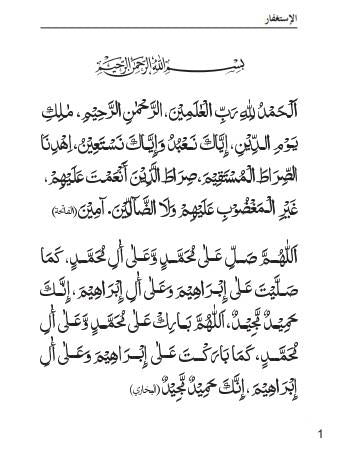 الإستغفار
بِسْمِ اللهِ الرَّحْمٰنِ الرَّحِيْمِ
اَلْحَمْدُ لِلّٰهِ رَبِّ الْعٰلَمِيْنَ، الرَّحْمٰنِ الرَّحِيْمِ، مٰلِكِ
يَوْمِ الدِّيْنِ، إِيَّاكَ نَعْبُدُ وَإِيَّاكَ نَسْتَعِيْنُ، اِهْدِنَا
الصِّرَاطَ الْمُسْتَقِيْمَ، صِرَاطَ الَّذِيْنَ أَنْعَمْتَ عَلَيْهِمْ،
غَيْرِ الْمَغْضُوْبِ عَلَيْهِمْ وَلَا الضَّآلِّيْنَ. آمِيْنَ (الفاتحة)
اَللّٰهُمَّ صَلِّ عَلٰى مُحَمَّدٍ وَّعَلٰى أٰلِ مُحَمَّدٍ، كَمَا
صَلَّيْتَ عَلٰى إِبْرَاهِيْمَ وَعَلٰى أٰلِ إِبْرَاهِيْمَ، إِنَّكَ
حَمِيْدٌ مَّجِيْدٌ، اَللّٰهُمَّ بَارِكْ عَلٰى مُحَمَّدٍ وَّعَلٰى أٰلِ
مُحَمَّدٍ، كَمَا بَارَكْتَ عَلٰى إِبْرَاهِيْمَ وَعَلٰى أٰلِ
إِبْرَاهِيْمَ، إِنَّكَ حَمِيْدٌ مَّجِيْدٌ (البخاري)
1